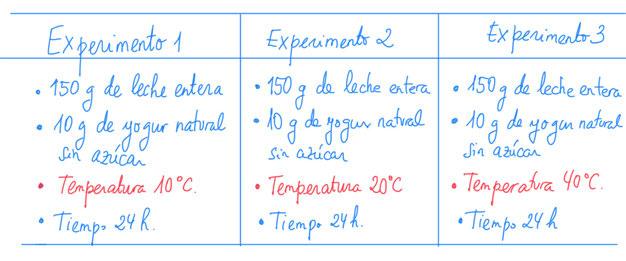 Experimento 1
• 150 g de leche entera
• 10 g de yogur natural
sin azúcar
• Temperatura 10°C.
• Tiempo 24 h.
Experimento 2
• 150 g de leche entera
• 10 g de yogur natural
sin azúcar
• Temperatura 20°C
• Tiempo 24h.
Experimento 3
• 150 g de leche entera
• 10 g de yogur natural
sin azúcar
• Temperatura 40°C.
• Tiempo 24h